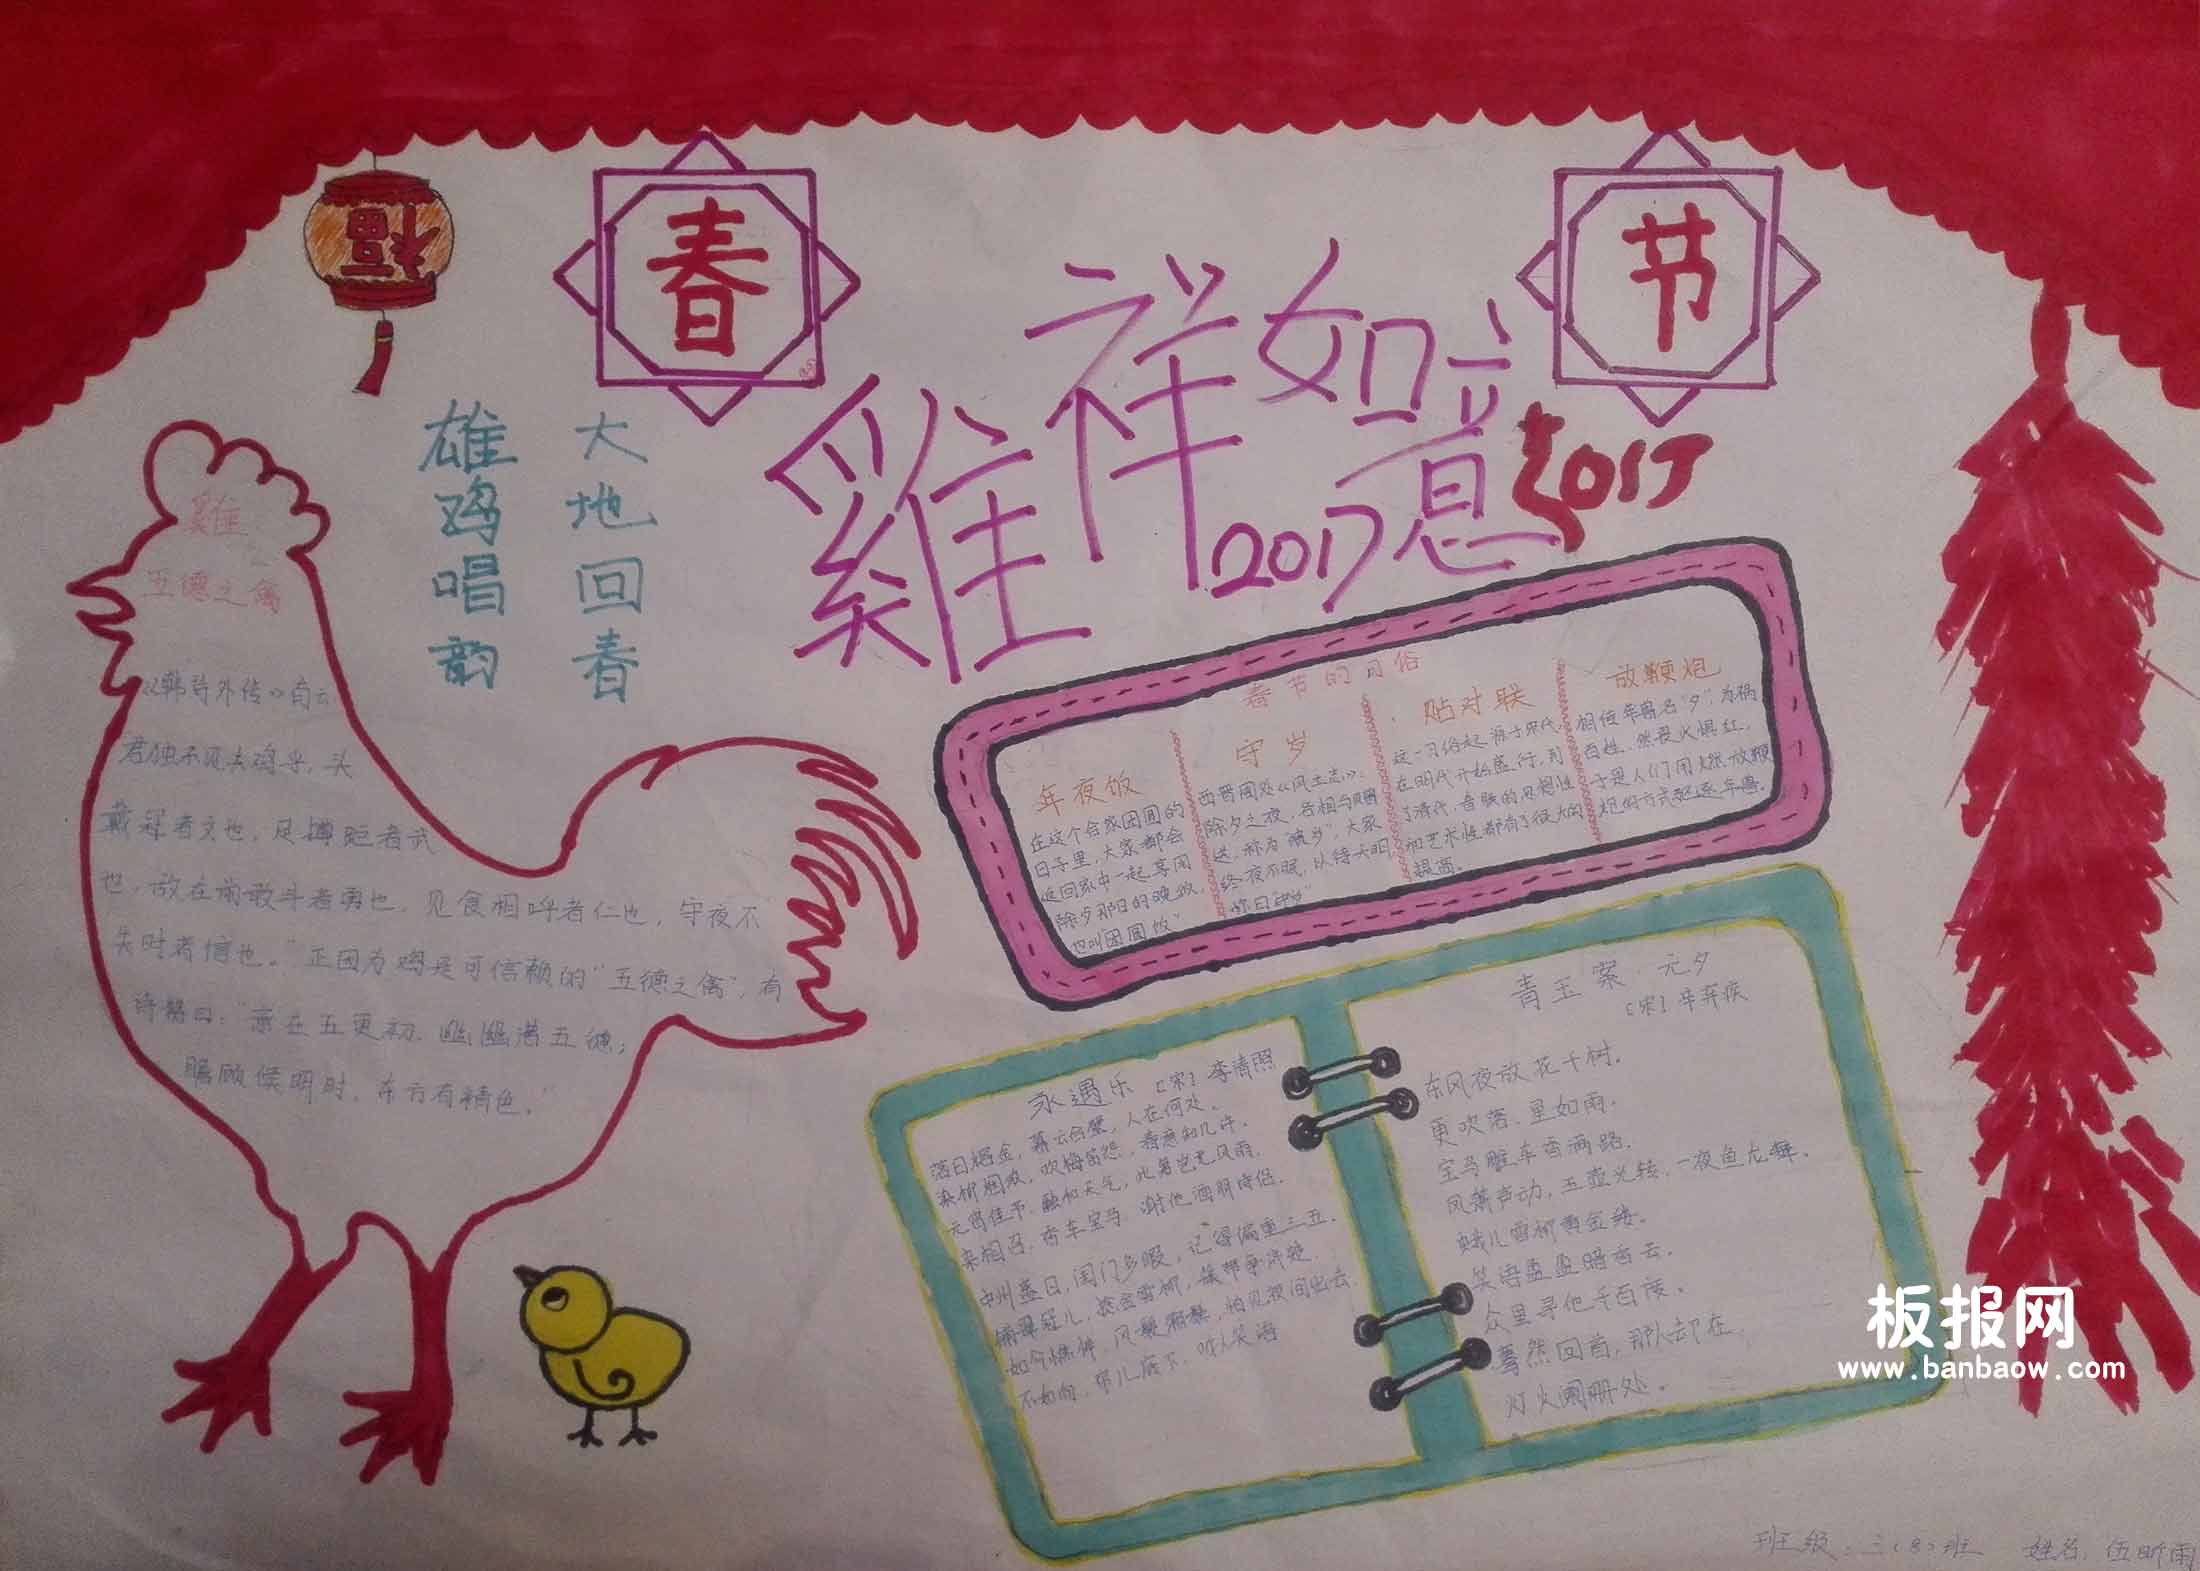 福
春
节
雞祥如意
2017
2017
大地回春
雄鸡唱韵
雞
五德之禽
《韩诗外传》有云
君独不见夫鸡乎，头
戴冠者文也，足搏距者武
也，敌在前敢斗者勇也，见食相呼者仁也，守夜不
失时者信也。”正因为鸡是可信赖的“五德之禽”，有
在五更初，
候明时，东方有精色。”
春节的习俗
年夜饭
在这个合家团圆的
日子里，大家都会
返回家中一起享用
除夕那日的晚饭，
也叫团圆饭”
守岁
西晋周处《风土志》：
除夕之夜，各相与赠
送，称为“馈岁”，大家
终夜不眠，以待天明
称曰守岁”
贴对联
这一习俗起源于宋代，
在明代开始盛行，到
了清代，春联的思想性
和艺术性都有了很大的
提高。
放鞭炮
相传年兽名“夕”，为祸
百姓，然畏火惧红，
于是人们用燃放鞭
炮的方式驱逐年兽。
永遇乐 [宋] 李清照
落日熔金，暮云合璧，人在何处。
染柳烟浓，吹梅笛怨，春意知几许。
元宵佳节，融和天气，次第岂无风雨。
来相召，香车宝马，谢他酒朋诗侣。
中州盛日，闺门多暇，记得偏重三五。
铺翠冠儿，捻金雪柳，簇带争济楚。
如今憔悴，风鬟霜鬓，怕见夜间出去。
不如向，帘儿底下，听人笑语
青玉案·元夕
[宋] 辛弃疾
东风夜放花千树。
更吹落，星如雨。
宝马雕车香满路。
风箫声动，玉壶光转，一夜鱼龙舞。
蛾儿雪柳黄金缕。
笑语盈盈暗香去。
众里寻他千百度。
蓦然回首，那人却在，
灯火阑珊处。
板报网
www.banbaow.com
班级：三（8）班 姓名：伍昕雨